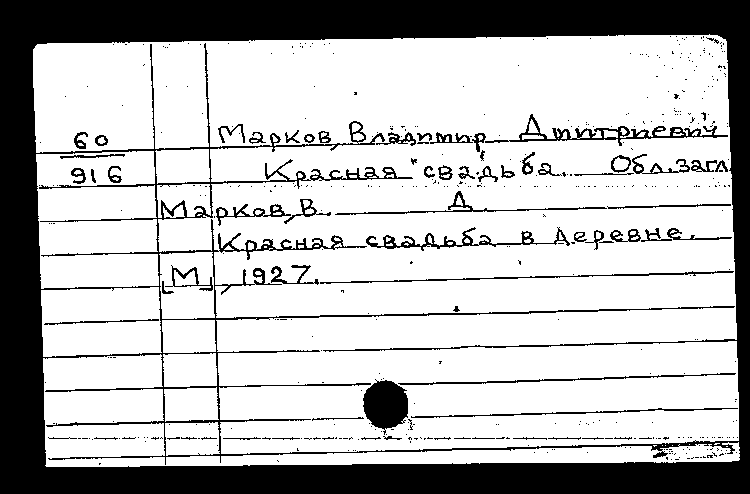 60
916
Марков, Владимир Дмитриевич
Красная "свадьба. Обл. загл.
Марков, В. Д.
Красная свадьба в деревне.
[М], 1927.